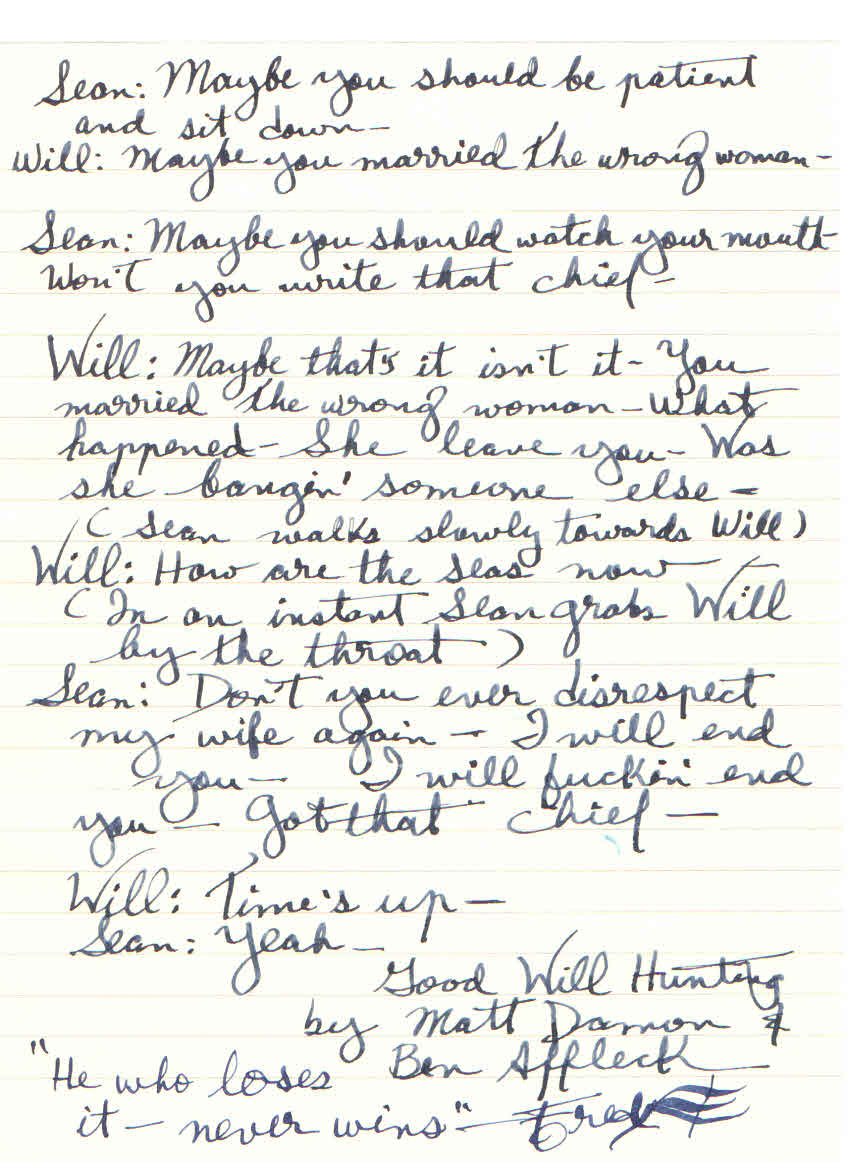 Sean: Maybe you should be patient
and sit down—
Will: Maybe you married the wrong woman—
Sean: Maybe you should watch your mouth
Won't you write that chief—
Will: Maybe that's it isn't it— You
married the wrong woman— What
happened— She leave you— Was
she bangin' someone else—
(Sean walks slowly towards Will)
Will: How are the seas now—
(In an instant Sean grabs Will
by the throat)
Sean: Don't you ever disrespect
my wife again— I will end
you— I will fuckin' end
you— Got that chief—
Will: Time's up—
Sean: Yeah—
Good Will Hunting
by Matt Damon &
Ben Affleck
"He who loses
it— never wins"—